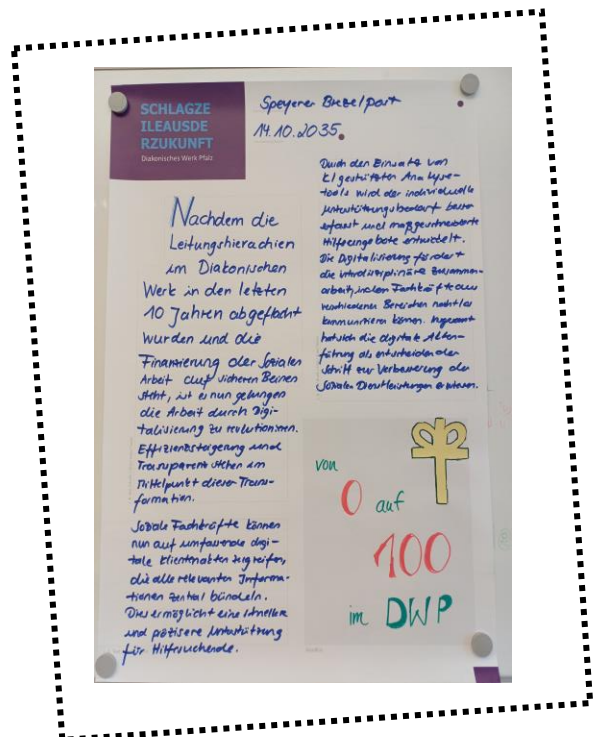 SCHLAGZE
ILEAUSDE
RZUKUNFT
Diakonisches Werk Pfalz
Speyerer Brezelpost
14.10.2035
Nachdem die
Leitungshierachien
im Diakonischen
Werk in den letzten
10 Jahren abgeflacht
wurden und die
Finanzierung der Sozialen
Arbeit auf sicheren Beinen
steht, ist es nun gelungen
die Arbeit durch Digi-
talisierung zu revolutionieren.
Effizienzsteigerung und
Transparenz stehen im
Mittelpunkt dieser Trans-
formation.
Soziale Fachkräfte können
nun auf umfassende digi-
tale Klientenakten zugreifen,
die alle relevanten Informa-
tionen zentral bündeln.
Dies ermöglicht eine schnellere
und präzisere Unterstützung
für Hilfesuchende.
Durch den Einsatz von
KI gestützten Analyse-
tools wird der individuelle
Unterstützungsbedarf besser
erfasst und maßgeschneiderte
Hilfsangebote entwickelt.
Die Digitalisierung fördert
die interdisziplinäre Zusammen-
arbeit, indem Fachkräfte aus
verschiedenen Bereichen nahtlos
kommunizieren können. Insgesamt
hat sich die digitale Akten-
führung als entscheidender
Schritt zur Verbesserung der
Sozialen Dienstleistungen erwiesen.
von
0 auf
100
im DWP